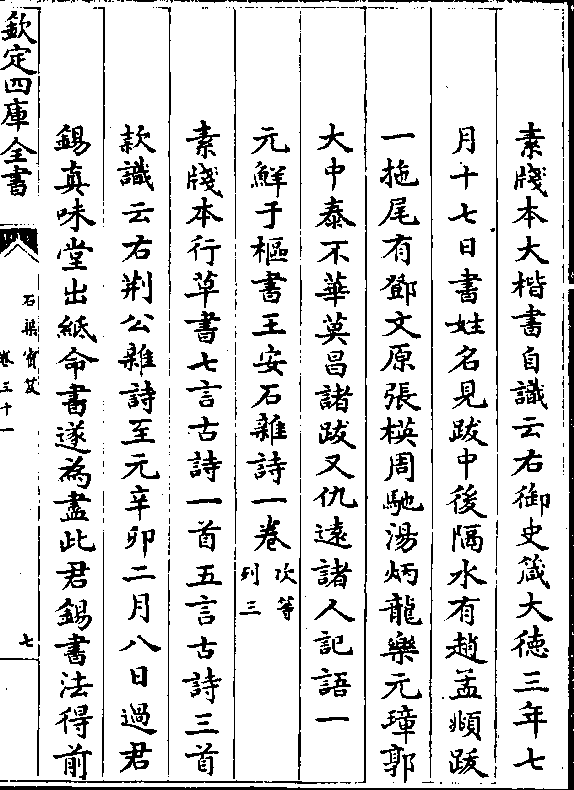 素牋本大楷書自識云右御史箴大徳三年七
月十七日書姓名見跋中後隔水有趙孟頫跋
一拖尾有鄧文原張楧周馳湯炳龍樂元璋郭
大中泰不華莫昌諸跋又仇逺諸人記語一
元鮮于樞書王安石雜詩一卷次等列三
素牋本行草書七言古詩一首五言古詩三首
款識云右荆公雜詩至元辛卯二月八日過君
錫真味堂出紙命書遂為盡此君錫書法得前
欽定四庫全書
石渠寳笈
卷三十一
七